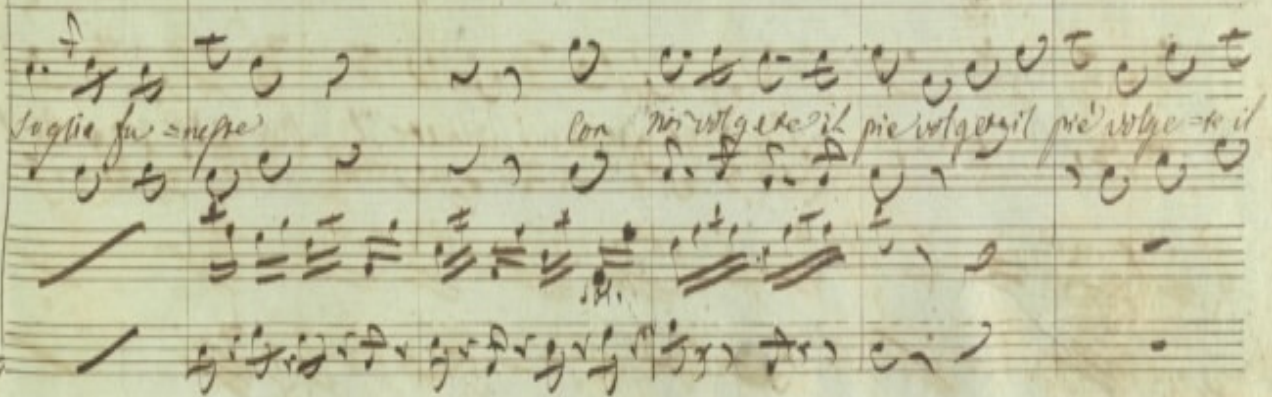 soglia fu=nesta con noi volgere il piè volgere il piè volge=re il